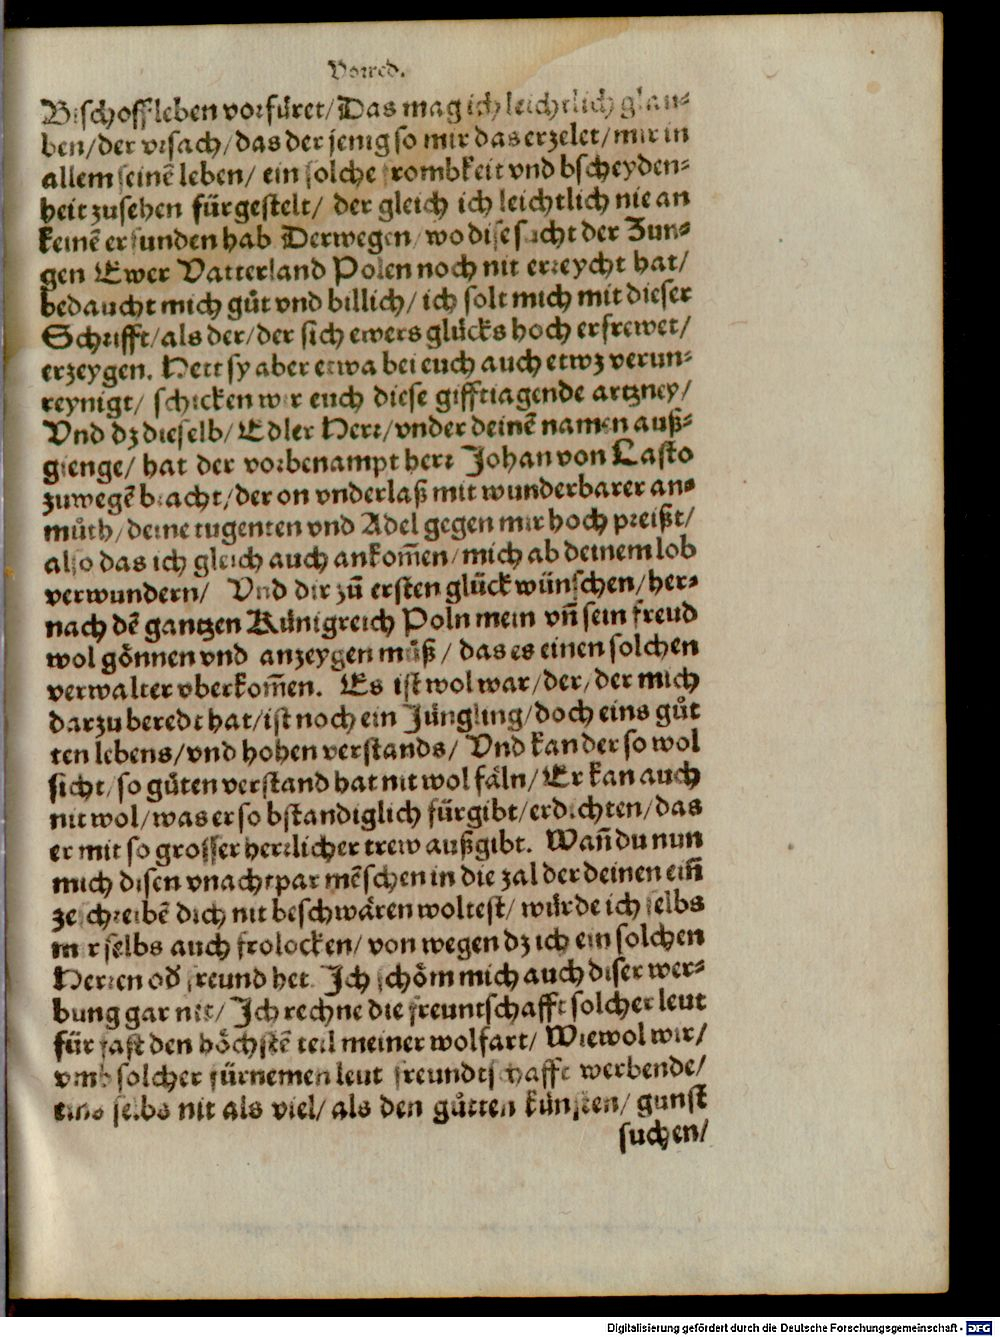 Vorred.
Bischoffleben vorfüret/ Das mag ich leichtlich glau⸗
ben/ der vrsach/ das der jenig so mir das erzelet/ mir in
allem seinē leben/ ein solche frombkeit vnd bscheyden⸗
heit zusehen fürgestelt/ der gleich ich leichtlich nie an
keinē erfunden hab Derwegen/ wo dise sucht der Zun⸗
gen Ewer Vatterland Polen noch nit erreycht hat/
bedaucht mich gůt vnd billich/ ich solt mich mit dieser
Schrifft/ als der/ der sich ewers glücks hoch erfrewet/
erzeygen. Hett sy aber etwa bei euch auch etwz verun⸗
reynigt/ schicken wir euch diese gifftiagende artzney/
Vnd dz dieselb/ Edler Herr/ vnder deinē namen auß⸗
gienge/ hat der vorbenampt herr Johan von Lasto
zuwegē bracht/ der on vnderlaß mit wunderbarer an⸗
můth/ deine tugenten vnd Adel gegen mir hoch preißt/
also das ich gleich auch ankom̄en/ mich ab deinem lob
verwundern/ Vnd dir zů ersten glück wünschen/ her⸗
nach dē gantzen Künigreich Poln mein vn̄ sein freud
wol gönnen vnd anzeygen můß/ das es einen solchen
verwalter vberkom̄en. Es ist wol war/ der/ der mich
darzu beredt hat/ ist noch ein Jüngling/ doch eins gůt
ten lebens/ vnd hohen verstands/ Vnd kan der so wol
sicht/ so gůten verstand hat nit wol fäln/ Er kan auch
nit wol/ was er so bstandiglich fürgibt/ erdichten/ das
er mit so grosser herrlicher trew außgibt. Wan̄ du nun
mich disen vnachtpar mēschen in die zal der deinen ein̄
zeschreibē dich nit beschwären woltest/ würde ich selbs
mir selbs auch frolocken/ von wegen dz ich ein solchen
Herren od̄ freund het. Ich schöm mich auch diser wer⸗
bung gar nit/ Ich rechne die freuntschafft solcher leut
für fast den höchstē teil meiner wolfart/ Wiewol wir/
vmb solcher fürnemen leut freundtschafft werbende/
uns selbs nit als viel/ als den gůtten künsten/ gunst
suchen/
Digitalisierung gefördert durch die Deutsche Forschungsgemeinschaft - DFG